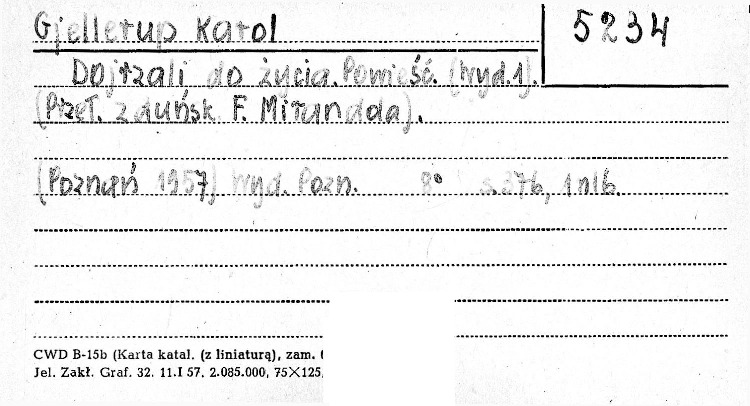 Gjellerup Karol
5234
Dojrzali do życia. Powieść. (Wyd.1).
(Przeł. z duńsk F. Mirandda).
(Poznań 1957) Wyd. Pozn. 8° s.376, 1 nlb.
CWD B-15b (Karta katal. (z liniaturą), zam.
Jel. Zakł. Graf. 32. 11.I 57. 2.085.000, 75×125,